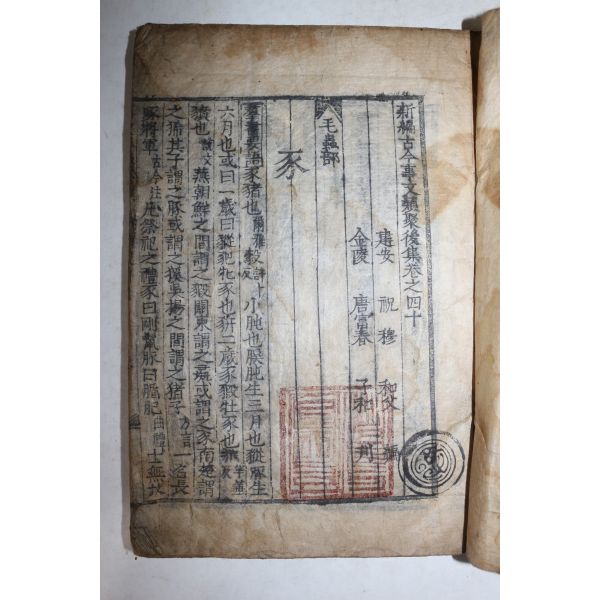 新編古今事文類聚後集卷之四十
建安 祝穆 和父 編
金陵 唐富春 子和 刋
毛蟲部
豕
羣書要語豕猪也爾雅豰小豚也豯豚生三月也豵豚生
六月也或曰一歲曰豵豝牝豕也豜三歲豕豭牡豕也
豶也說文燕朝鮮之間謂之豭關東謂之彘或謂之豕南楚謂
之豨其子謂之豚或謂之貕吳揚之間謂之猪子方言一名長
喙將軍古今注凡祭祀之禮豕曰剛鬣豚曰腯肥曲禮士無故